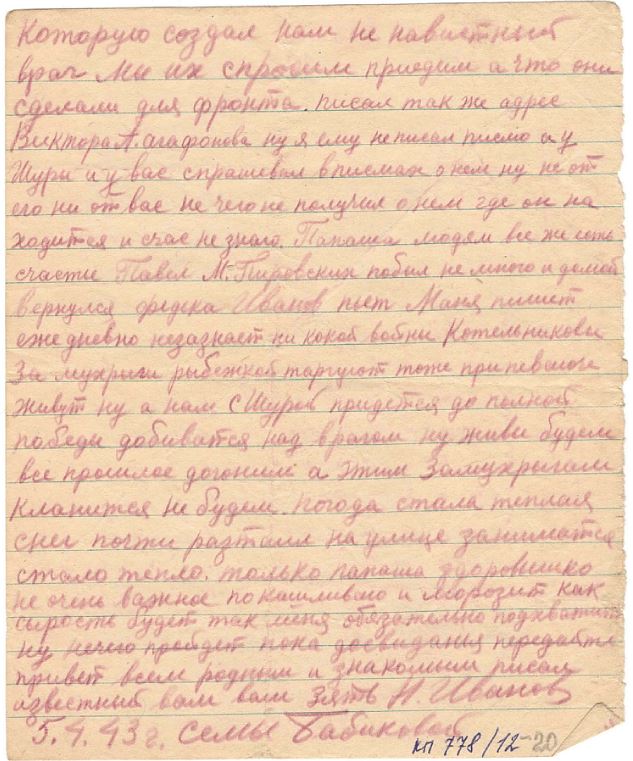 Которую создал нам не навистный
враг мы их спросим приедим а что они
сделали для фронта. писал так же адрес
Виктора А. агафонова ну я ему не писал писмо а у
Шуры и у вас спрашевал в писмах о нем ну не от
его ни от вас не чего не получил о нем где он на
ходится и счас не знаю. Папаша людям все же есть
счастье Павел М. Пировских побыл не много и домой
вернулся федька Иванов пьет Маня пишет
еже дневно незазнает ни какой войны Котельниковы
За мухрыги рыбежкой таргуют тоже при певаюче
живут ну а нам с Шурой придется до полной
победы добиватся над врагом ну живы будем
все прошлое догоним а этим Замухрыгам
кланится не будем. погода стала теплая
снег почти разтаил на улице заниматся
стало тепло. только папаша здоровишко
не очень важное покашливаю и морозит как
сырость будет так меня обязательно подхватит
ну нечего пройдет пока досвиданья передайте
привет всем родным и знакомым писал
известный вам ваш зять Н. Иванов
5.4.43 г. семье Бабиковой
кп 778/12-20